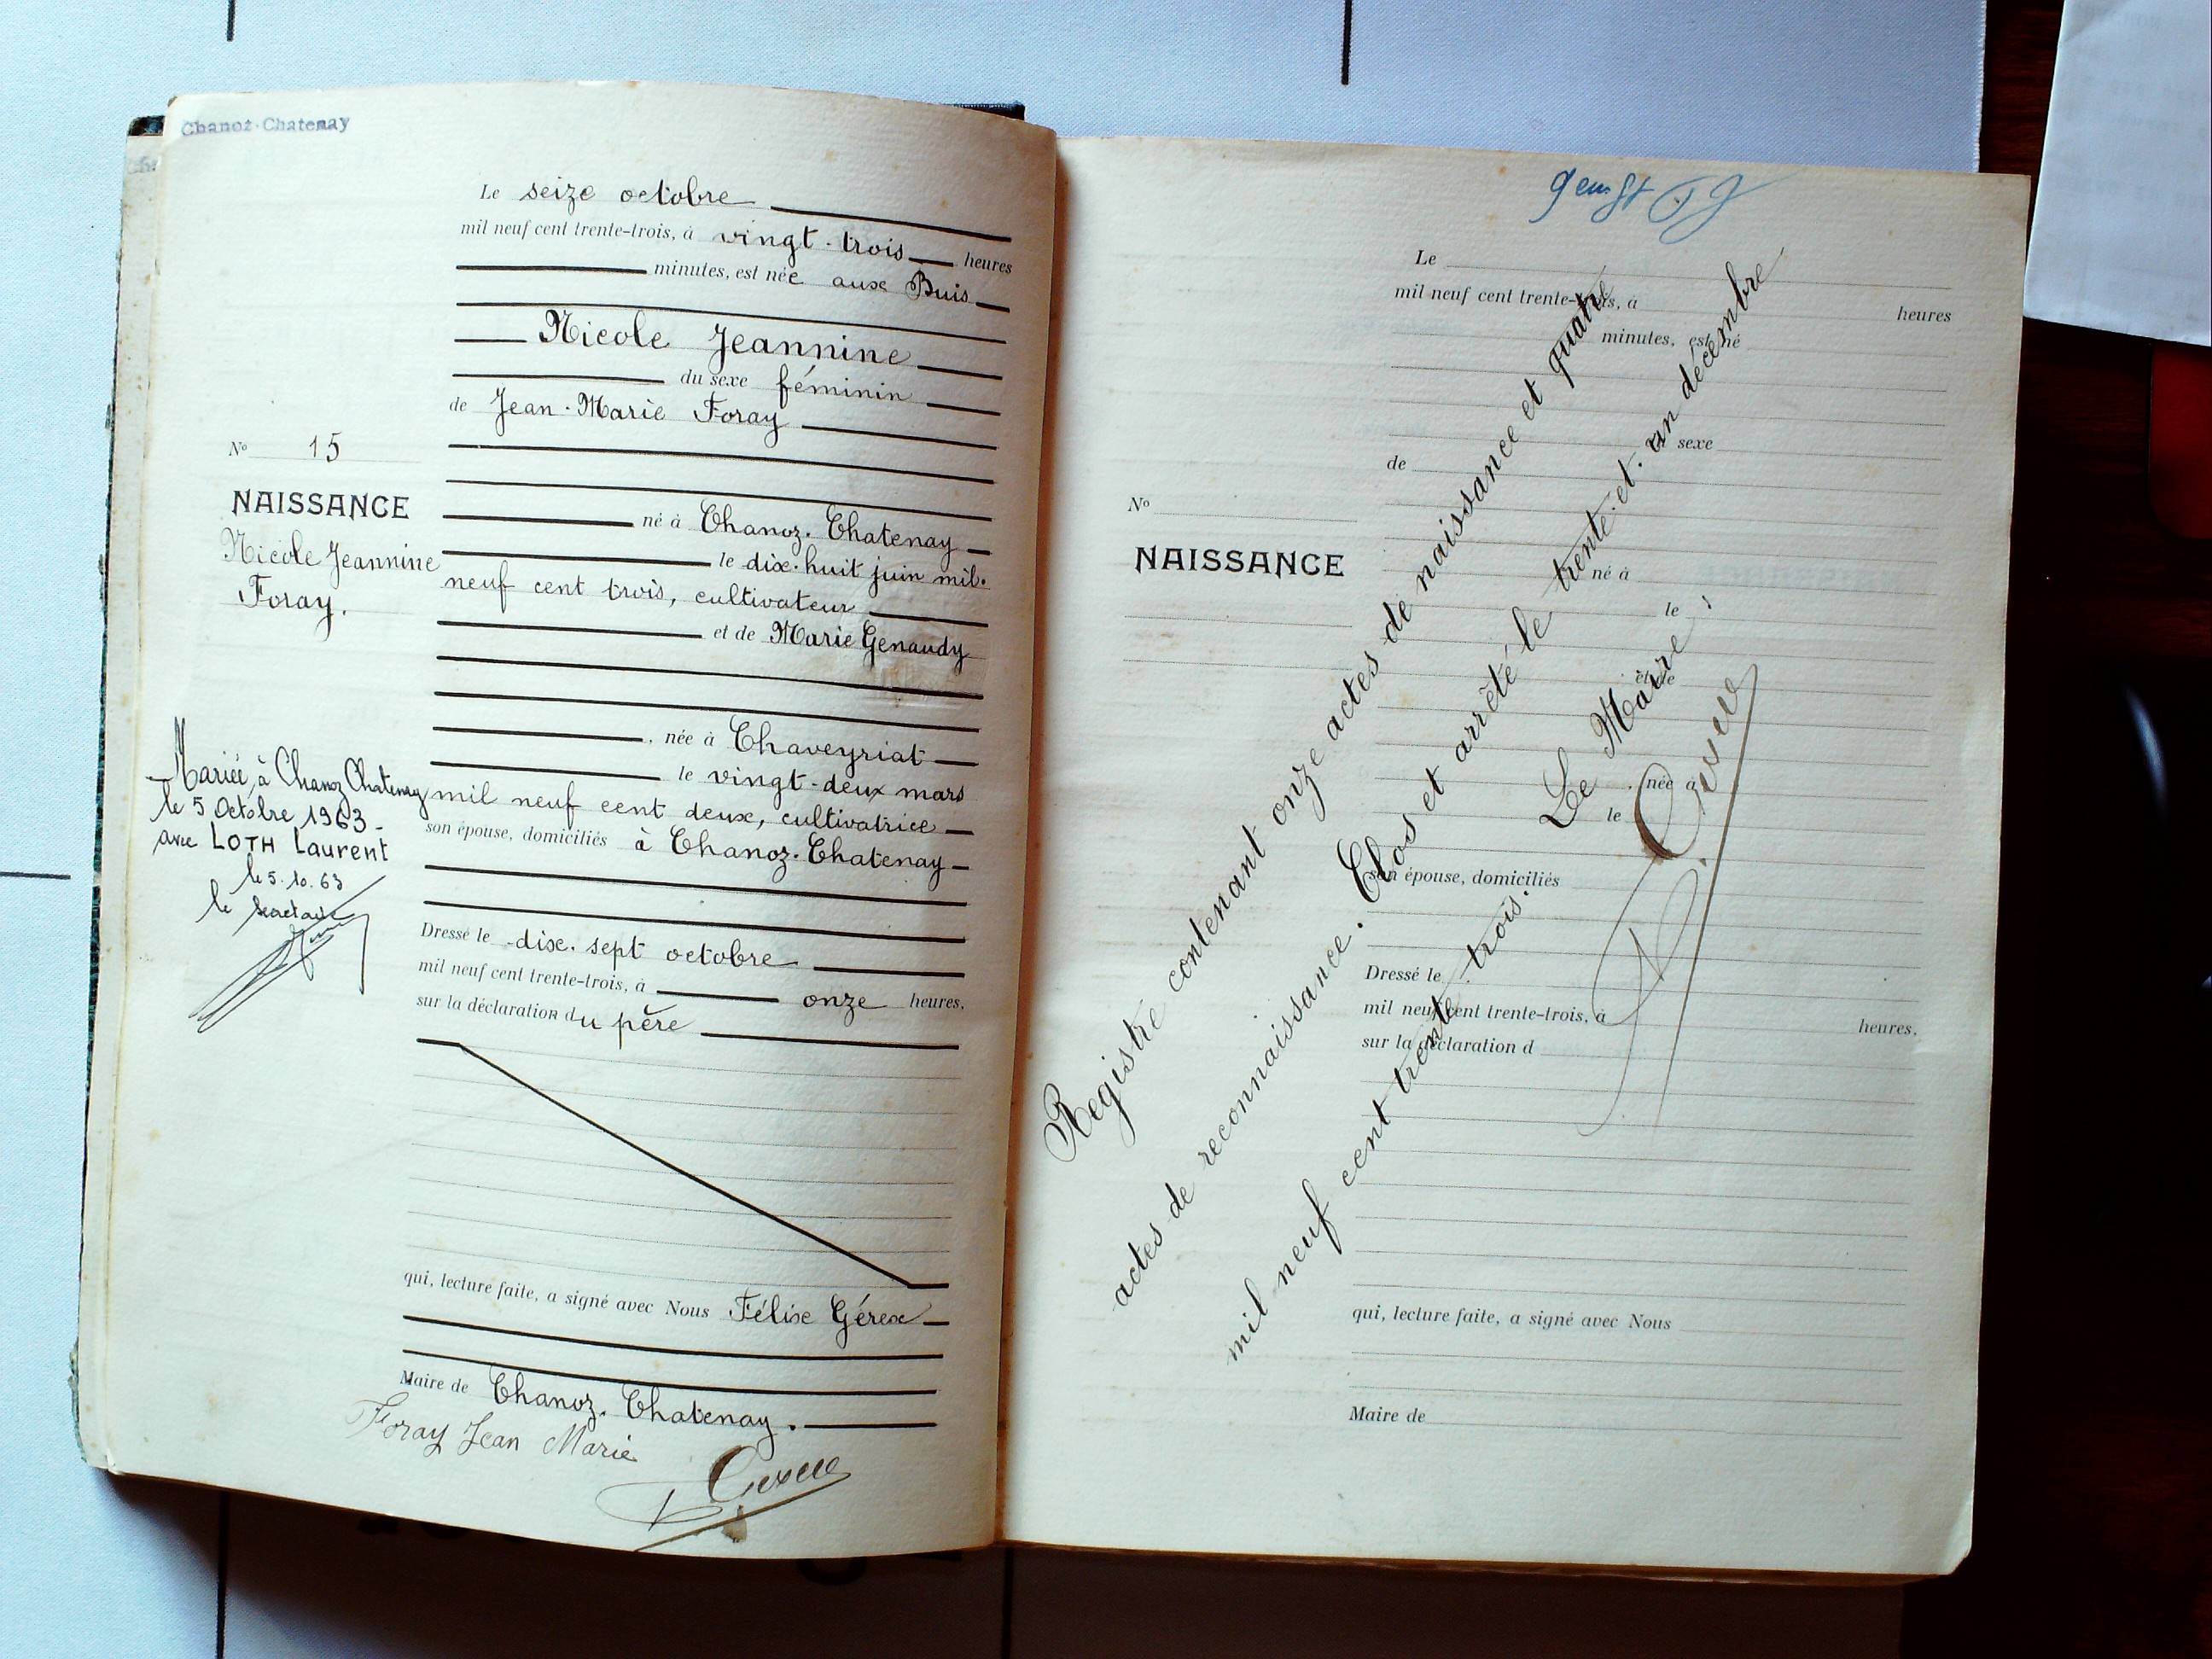 Chanoz-Chatenay
Le seize octobre
mil neuf cent trente-trois, à vingt-trois heures
minutes, est née aux Buis
Nicole Jeannine
du sexe féminin
de Jean-Marie Foray
né à Chanoz-Chatenay
le dix-huit juin mil-
neuf cent trois, cultivateur
et de Marie Genaudy
, née à Chaveyriat
le vingt-deux mars
mil neuf cent deux, cultivatrice
son épouse, domiciliés à Chanoz-Chatenay
Dressé le dix-sept octobre
mil neuf cent trente-trois, à onze heures.
sur la déclaration du père
qui, lecture faite, a signé avec Nous Félix Gérex
Maire de Chanoz-Chatenay.
Foray Jean Marie
No 15
NAISSANCE
Nicole Jeannine
Foray.
Mariée, à Chanoz Chatenay
le 5 Octobre 1963-
avec LOTH Laurent
le 5.10.63
le secrétaire
Le
mil neuf cent trente-trois, à heures
minutes, est né
sexe
de
No
NAISSANCE
né à
le
et de
, née à
le
son épouse, domiciliés
Dressé le
mil neuf cent trente-trois, à heures.
sur la déclaration d
qui, lecture faite, a signé avec Nous
Maire de
Registre contenant onze actes de naissance et quatre
actes de reconnaissance. Clos et arrêté le trente-et-un décembre
mil neuf cent trente trois.
Le Maire,